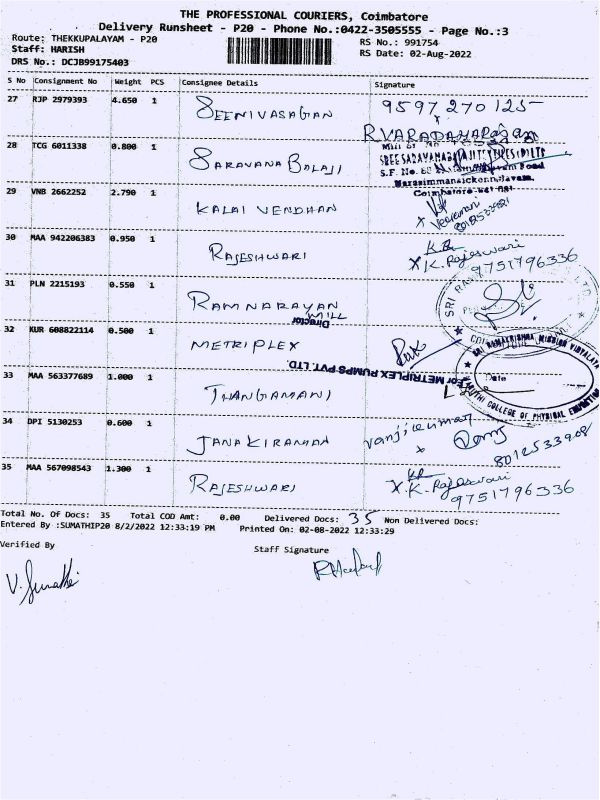 THE PROFESSIONAL COURIERS, Coimbatore
Delivery Runsheet - P20 - Phone No.:0422-3505555 - Page No.:3
Route: THEKKUPALAYAM - P20
RS No.: 991754
Staff: HARISH
RS Date: 02-Aug-2022
DRS No.: DCJB99175403
S No Consignment No Weight PCS Consignee Details Signature
27 RJP 2979393 4.650 1 SEENIVASAGAN 9597270125
R VARADAHARAJAN
28 TCG 6011338 0.800 1 SARAVANA BALAJI
S.F. No.
Coimbatore
29 VNB 2662252 2.790 1 KALAI VENDHAN
30 MAA 942206383 0.950 1 RAJESHWARI X K. Rajeswari
9751796336
31 PLN 2215193 0.550 1 RAMNARAYAN
MILL
Director
32 KUR 608822114 0.500 1 METRIPLEX
For METRIPLEX PUMPS PVT. LTD.
SRI RAMAKRISHNA MISSION VIDYALAYA
MARUTHI COLLEGE OF PHYSICAL EDUCATION
Date
33 MAA 563377689 1.000 1 THANGAMANI
34 DPI 5130253 0.600 1 JANAKIRAMAN
8012533908
35 MAA 567098543 1.300 1 RAJESHWARI X. K. Rajeswari
9751796336
Total No. Of Docs: 35 Total COD Amt: 0.00 Delivered Docs: 35 Non Delivered Docs:
Entered By :SUMATHIP20 8/2/2022 12:33:19 PM Printed On: 02-08-2022 12:33:29
Verified By
Staff Signature